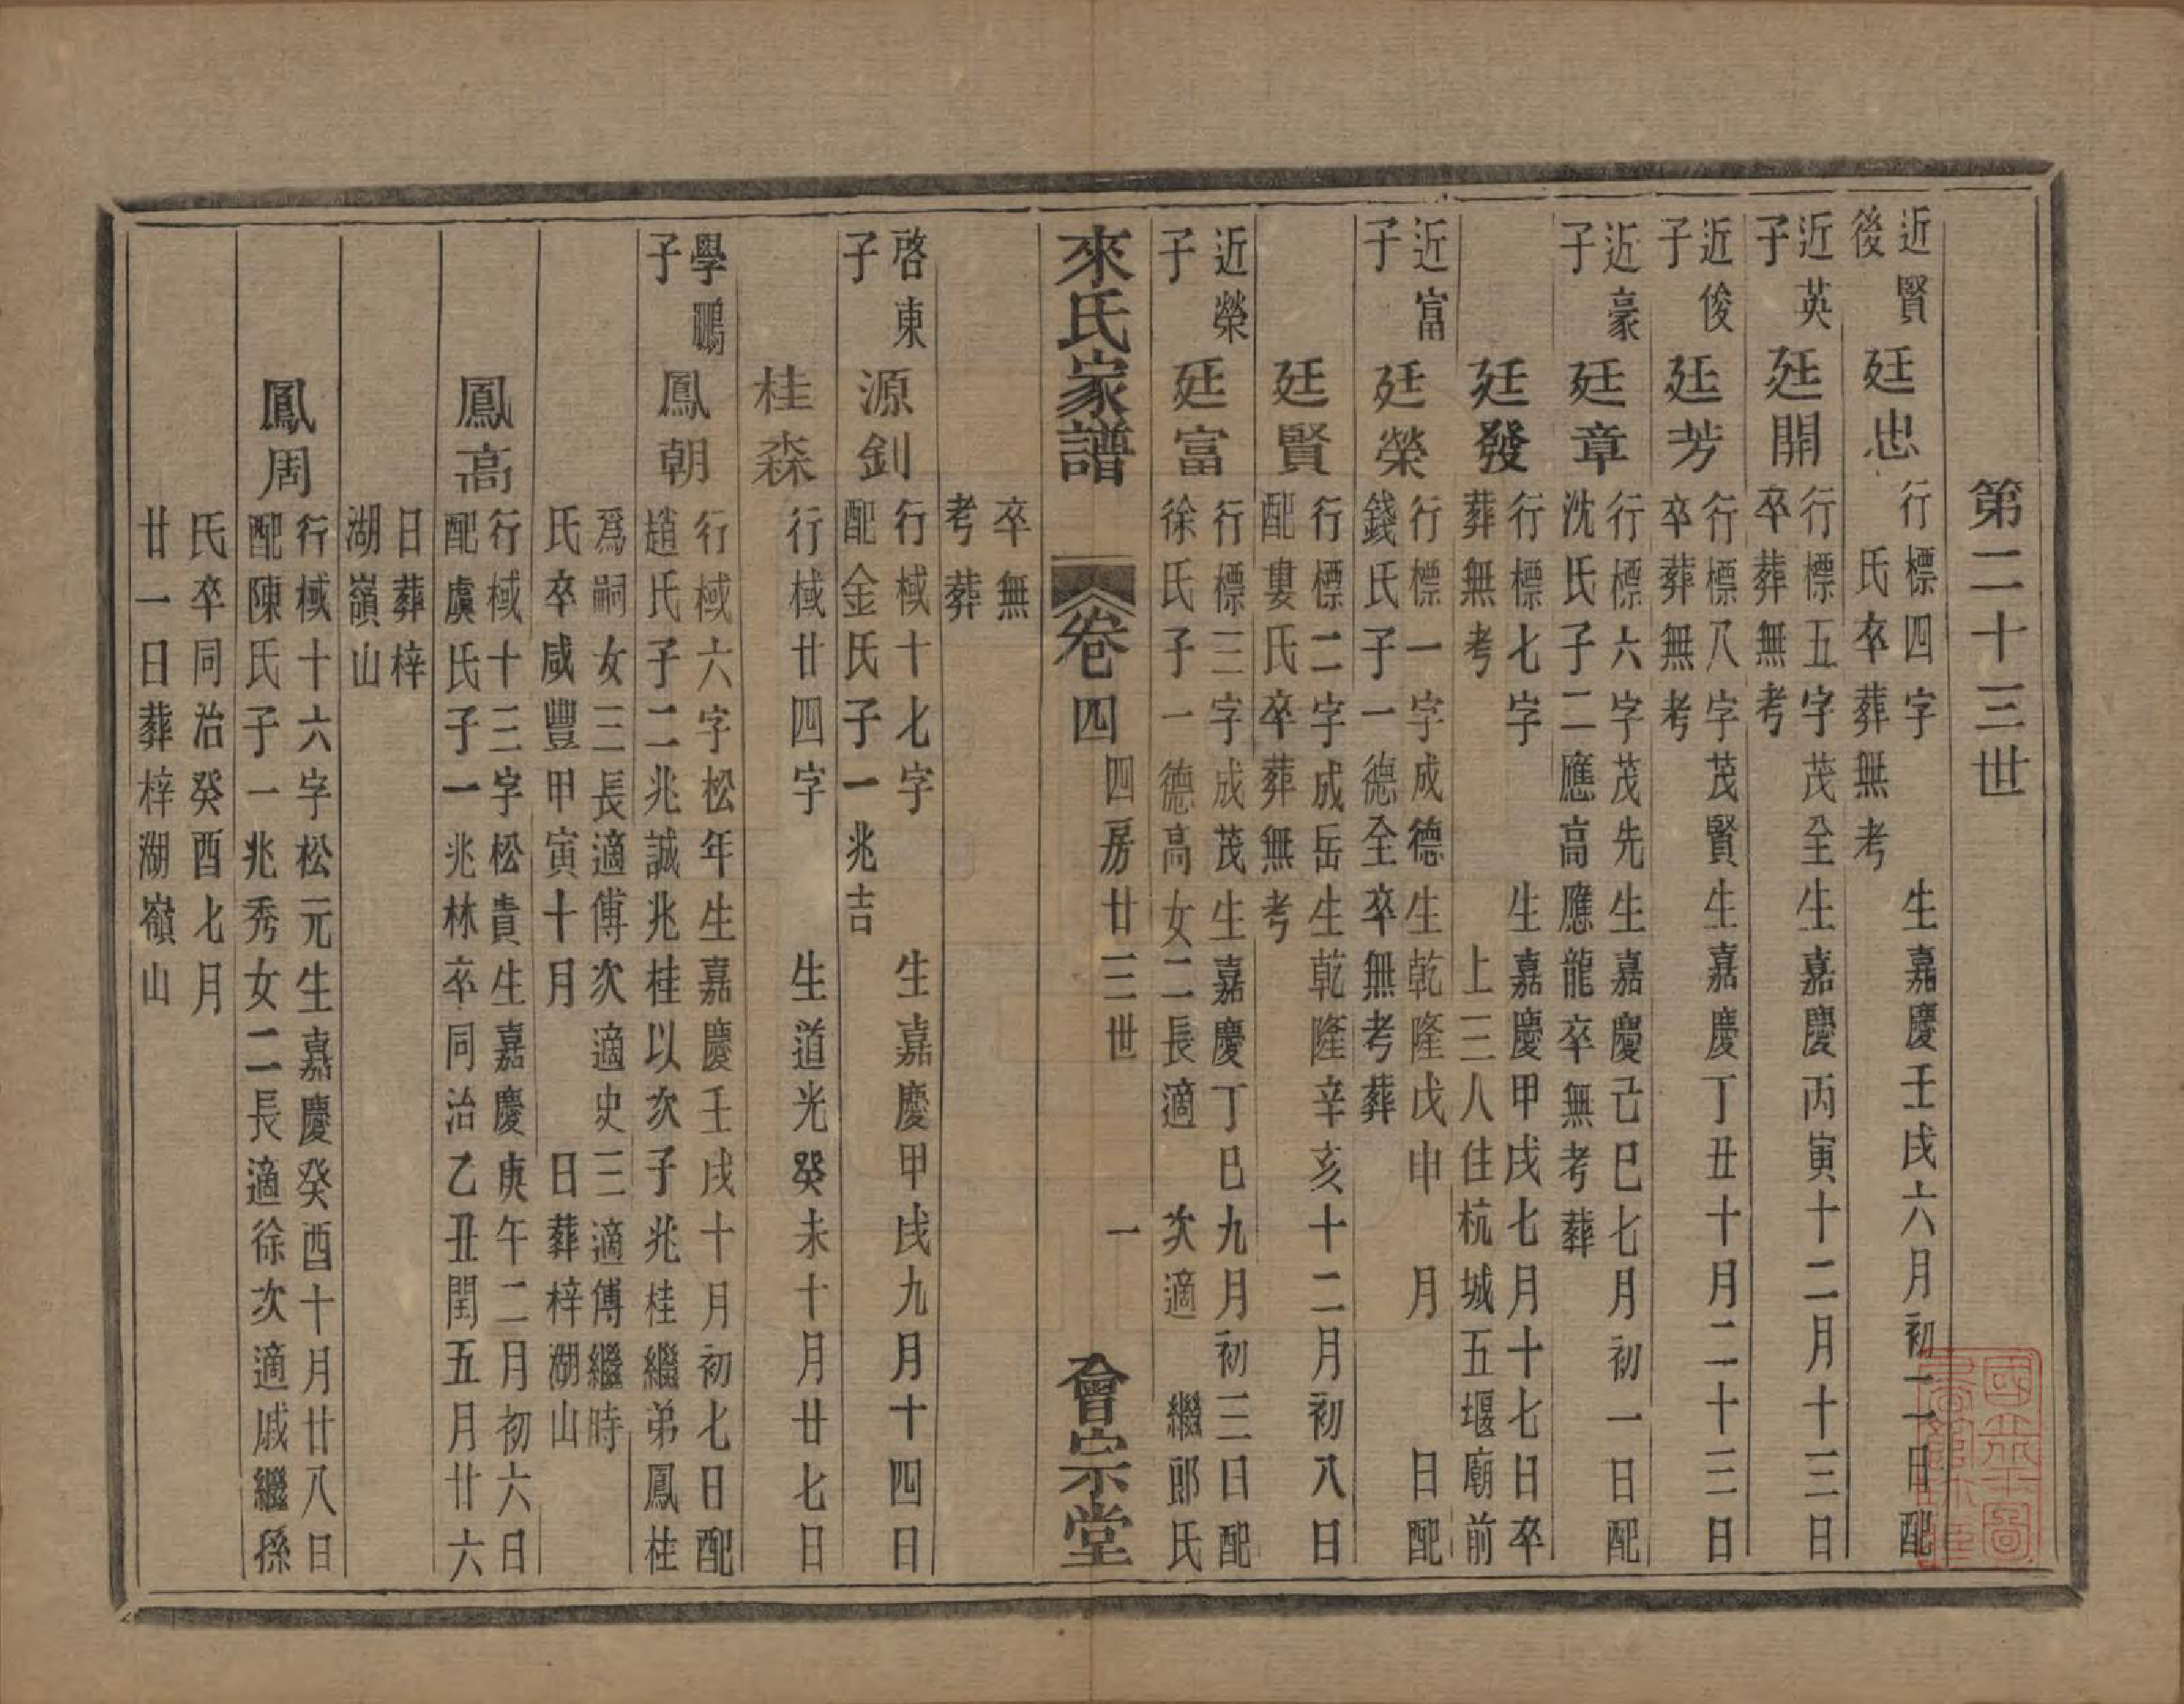 第二十三世
近賢後
廷忠
行標四字　　生嘉慶壬戌六月初一日配
　氏卒葬無考
近英子
廷開
行標五字茂全生嘉慶丙寅十二月十三日
卒葬無考
近俊子
廷芳
行標八字茂賢生嘉慶丁丑十月二十三日
卒葬無考
近豪子
廷章
行標六字茂先生嘉慶己巳七月初一日配
沈氏子二應高應龍卒無考葬
廷發
行標七字　　生嘉慶甲戌七月十七日卒
葬無考　　　　上三人住杭城五堰廟前
近富子
廷榮
行標一字成德生乾隆戊申　月　　日配
錢氏子一德全卒無考葬
廷賢
行標二字成岳生乾隆辛亥十二月初八日
配婁氏卒葬無考
近榮子
廷富
行標三字成茂生嘉慶丁巳九月初三日配
徐氏子一德高女二長適　次適　繼郎氏
來氏家譜　卷四　四房廿三世　一　會宗堂
卒無
考葬
啓東子
源釗
行棫十七字　　生嘉慶甲戌九月十四日
配金氏子一兆吉
桂森
行棫廿四字　　生道光癸未十月廿七日
學鵬子
鳳朝
行棫六字松年生嘉慶壬戌十月初七日配
趙氏子二兆誠兆桂以次子兆桂繼弟鳳桂
爲嗣女三長適傅次適史三適傅繼時
氏卒咸豐甲寅十月　　日葬梓湖山
鳳高
行棫十三字松貴生嘉慶庚午二月初六日
配虞氏子一兆林卒同治乙丑閏五月廿六
日葬梓
湖嶺山
鳳周
行棫十六字松元生嘉慶癸酉十月廿八日
配陳氏子一兆秀女二長適徐次適戚繼孫
氏卒同治癸酉七月
廿一日葬梓湖嶺山